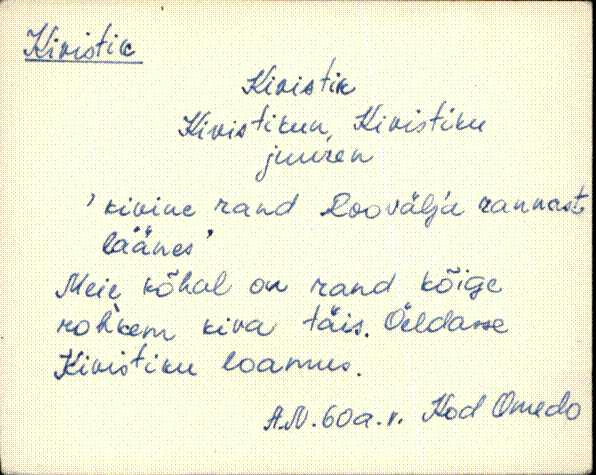 Kivistik
Kivistik
Kivistikun, Kivistiku
juuren
'kivine rand Roovälja rannast
läänes'
Meie kõhal on rand kõige
rohkem kiva täis. Üeldasse
Kivistiku loamus.
A.N. 60 a. v. Kod Omedo